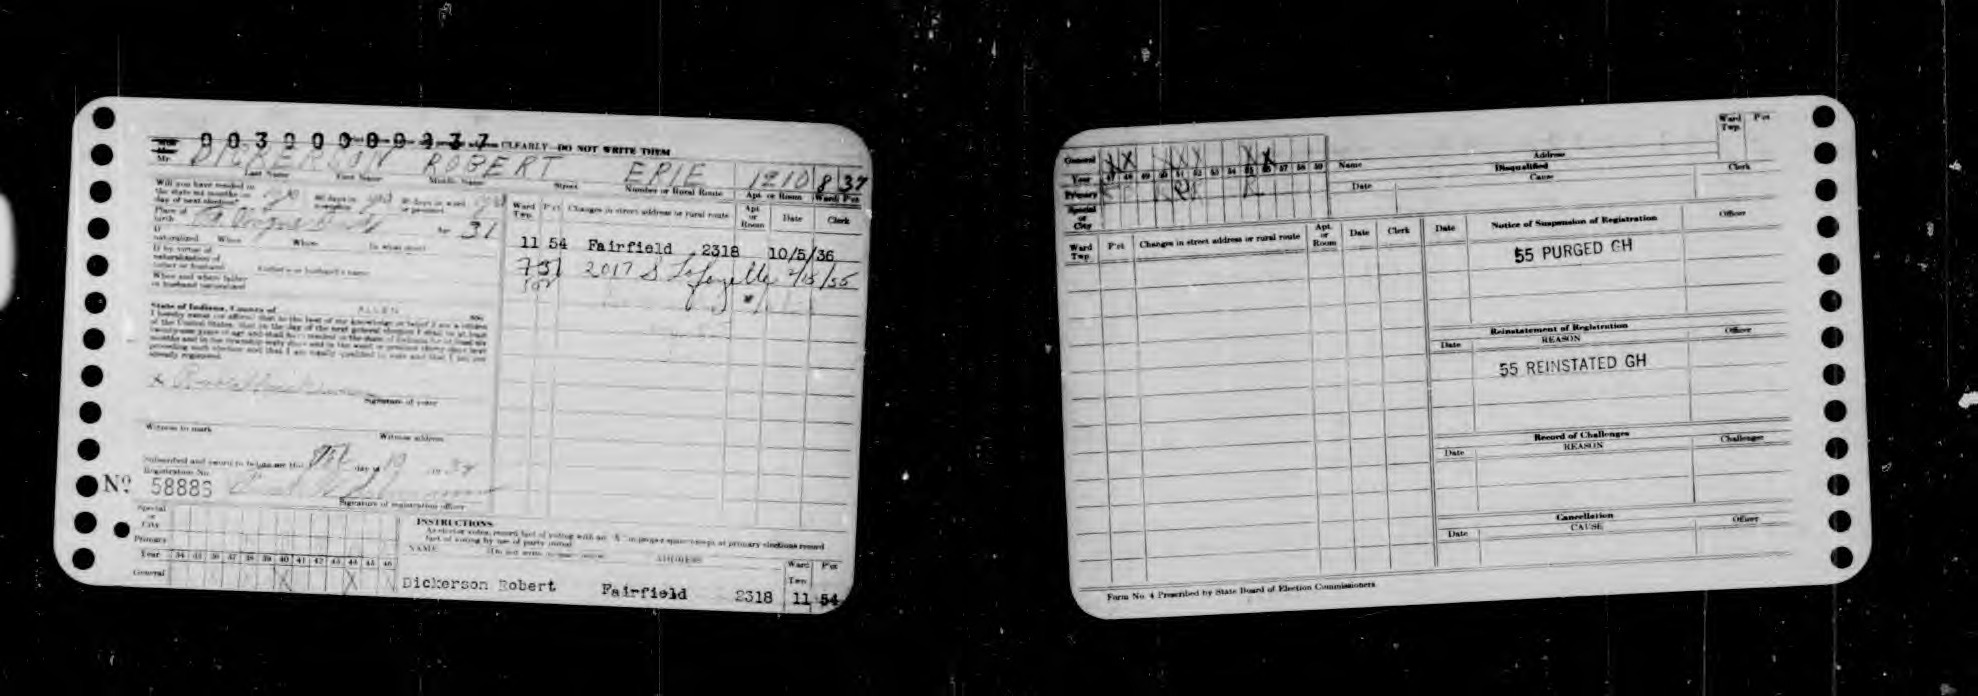 00300000937
CLEARLY—DO NOT WRITE THEM
Mr. DICKERSON ROBERT ERIE 1210 8 37
Last Name First Name Middle Name Street Number or Rural Route Apt. or Room Ward Pct
Will you have resided in
the state six months on
day of next election?
Place of
birth 31
If
naturalized When Where In what court
If by virtue of
naturalization of
father or husband Father's or husband's name
When and where father
or husband naturalized
Ward Twp. Pct Changes in street address or rural route Apt. or Room Date Clerk
11 54 Fairfield 2318 10/5/36
7 51 2017 S Lafayette 2/15/55
State of Indiana, County of ALLEN ss:
I hereby swear (or affirm) that to the best of my knowledge or belief I am a citizen
of the United States, that on the day of the next general election I shall be at least
twenty-one years of age and shall have resided in the state of Indiana for at least six
months and in the township sixty days and in the ward or precinct thirty days next
preceding such election and that I am legally qualified to vote and that I am not
already registered.
x
Signature of voter
Witness to mark Witness address
Subscribed and sworn to before me this day of 19
Registration No.
No. 58886
Signature of registration officer
Special
or
City
Primary
Year 34 35 36 37 38 39 40 41 42 43 44 45 46
General X X
INSTRUCTIONS
As elector votes, record fact of voting with an "X" in proper space except at primary elections record
fact of voting by use of party initial
NAME ADDRESS Ward Twp. Pct
Dickerson Robert Fairfield 2318 11 54
General X X X X X X X
Year 47 48 49 50 51 52 53 54 55 56 57 58 59
Primary R R
Special
or
City
Ward Twp. Pct
Name Address
Disqualified
Date Cause Clerk
Ward Twp. Pct Changes in street address or rural route Apt. or Room Date Clerk
Date Notice of Suspension of Registration Officer
55 PURGED GH
Reinstatement of Registration
Date REASON Officer
55 REINSTATED GH
Record of Challenges
Date REASON Challenger
Cancellation
Date CAUSE Officer
Form No. 4 Prescribed by State Board of Election Commissioners